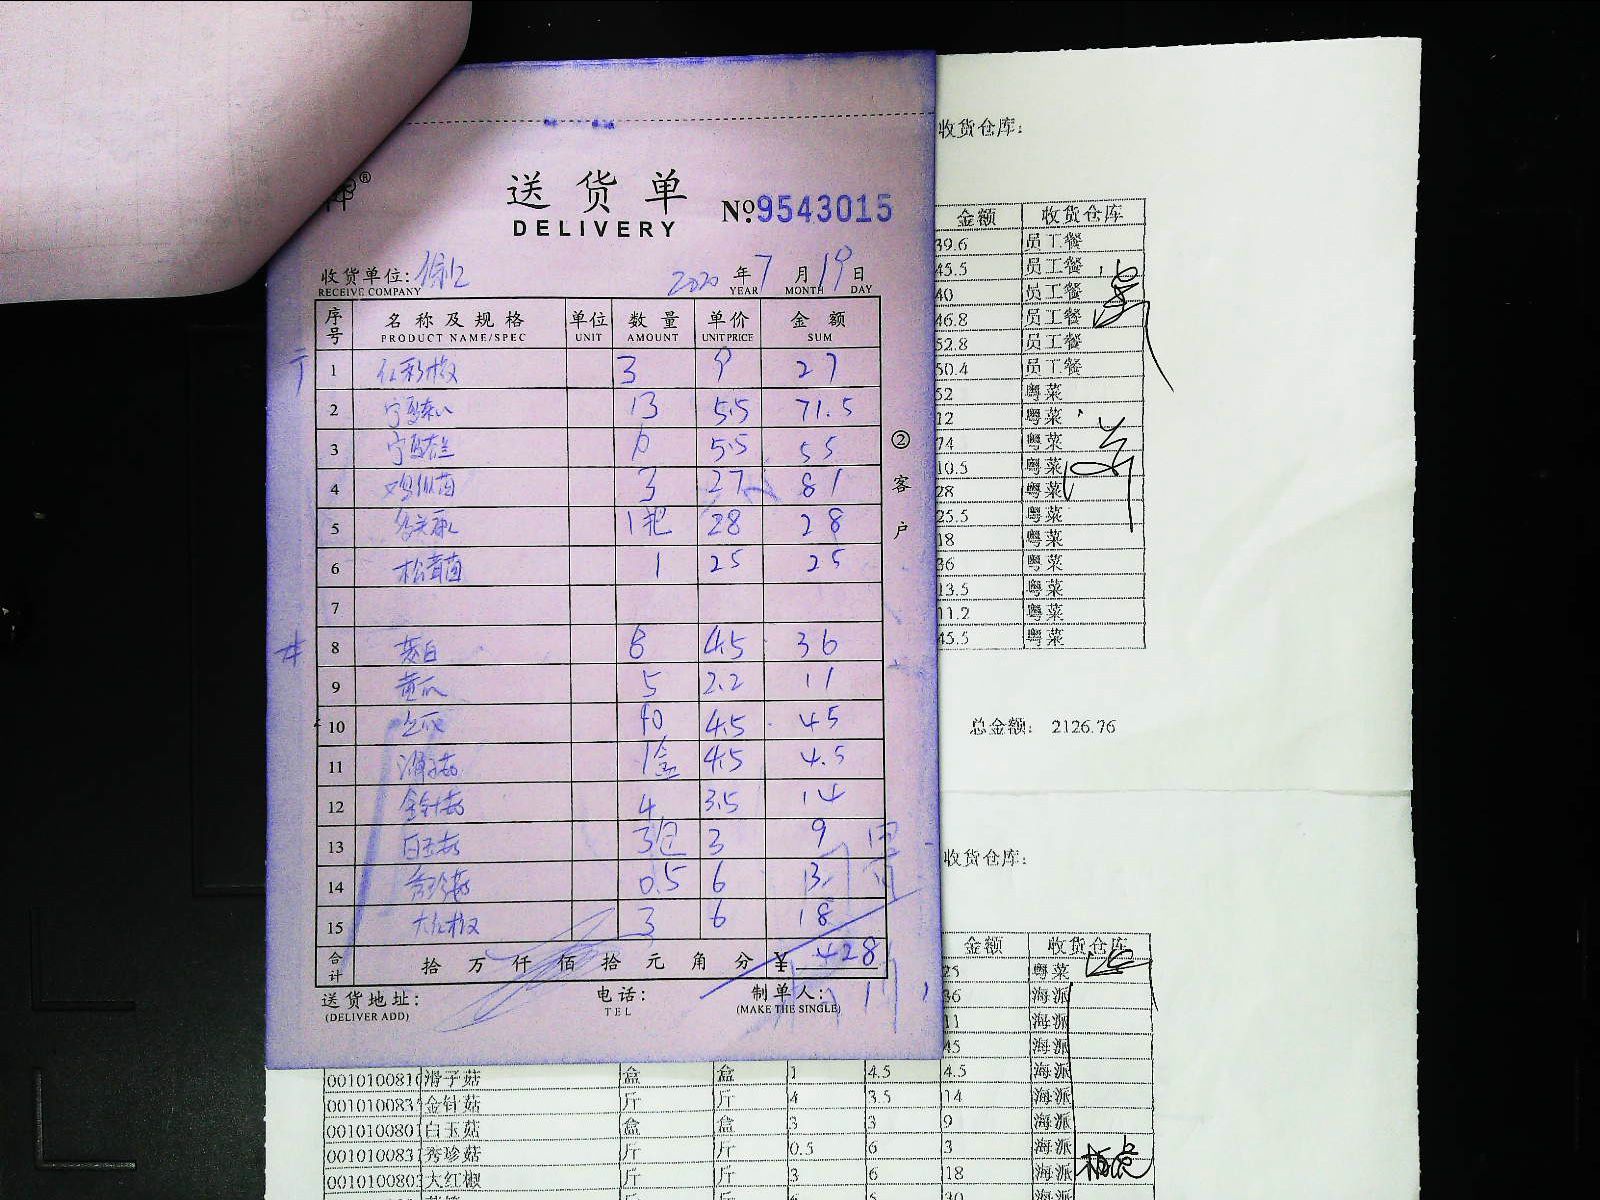 收货仓库:
送货单
DELIVERY
№9543015
收货单位: 徐汇 2020年7月19日
RECEIVE COMPANY YEAR MONTH DAY
序号 名称及规格 单位 数量 单价 金额
PRODUCT NAME/SPEC UNIT AMOUNT UNIT PRICE SUM
1 红彩椒 3 9 27
2 13 5.5 71.5
3 5.5 55
4 3 27 81
5 1把 28 28
6 松茸菌 1 25 25
7
8 茭白 8 4.5 36
9 黄瓜 5 2.2 11
10 10 4.5 45
11 滑子菇 1盒 4.5 4.5
12 金针菇 4 3.5 14
13 白玉菇 3包 3 9
14 秀珍菇 0.5 6 3
15 大红椒 3 6 18
合计 拾万仟佰拾元角分 ¥ 428
送货地址: 电话: 制单人:
(DELIVER ADD) TEL (MAKE THE SINGLE)
②客户
金额 收货仓库
39.6 员工餐
45.5 员工餐
40 员工餐
46.8 员工餐
52.8 员工餐
50.4 员工餐
52 粤菜
12 粤菜
74 粤菜
10.5 粤菜
28 粤菜
25.5 粤菜
18 粤菜
36 粤菜
13.5 粤菜
11.2 粤菜
45.5 粤菜
总金额: 2126.76
收货仓库:
金额 收货仓库
25 粤菜
36 海派
11 海派
45 海派
0010100810 滑子菇 盒 盒 1 4.5 4.5 海派
001010083 金针菇 斤 斤 4 3.5 14 海派
001010080 白玉菇 盒 盒 3 3 9 海派
001010083 秀珍菇 斤 斤 0.5 6 3 海派
001010080 大红椒 斤 斤 3 6 18 海派